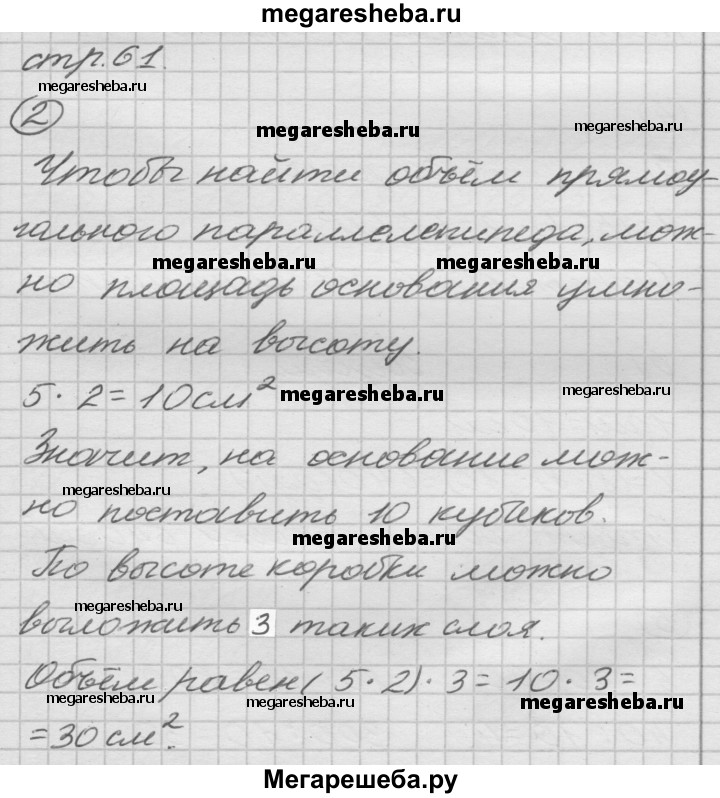 megaresheba.ru
стр. 61.
megaresheba.ru
2
megaresheba.ru megaresheba.ru
Чтобы найти объём прямоу-
гольного параллелепипеда, мож-
megaresheba.ru megaresheba.ru
но площадь основания умно-
жить на высоту.
5 · 2 = 10 см² megaresheba.ru megaresheba.ru
Значит, на основание мож-
megaresheba.ru
но поставить 10 кубиков.
megaresheba.ru
По высоте коробки можно
megaresheba.ru
выложить 3 таких слоя.
Объём равен (5 · 2) · 3 = 10 · 3 =
megaresheba.ru megaresheba.ru megaresheba.ru
= 30 см².
Мегарешеба.ру